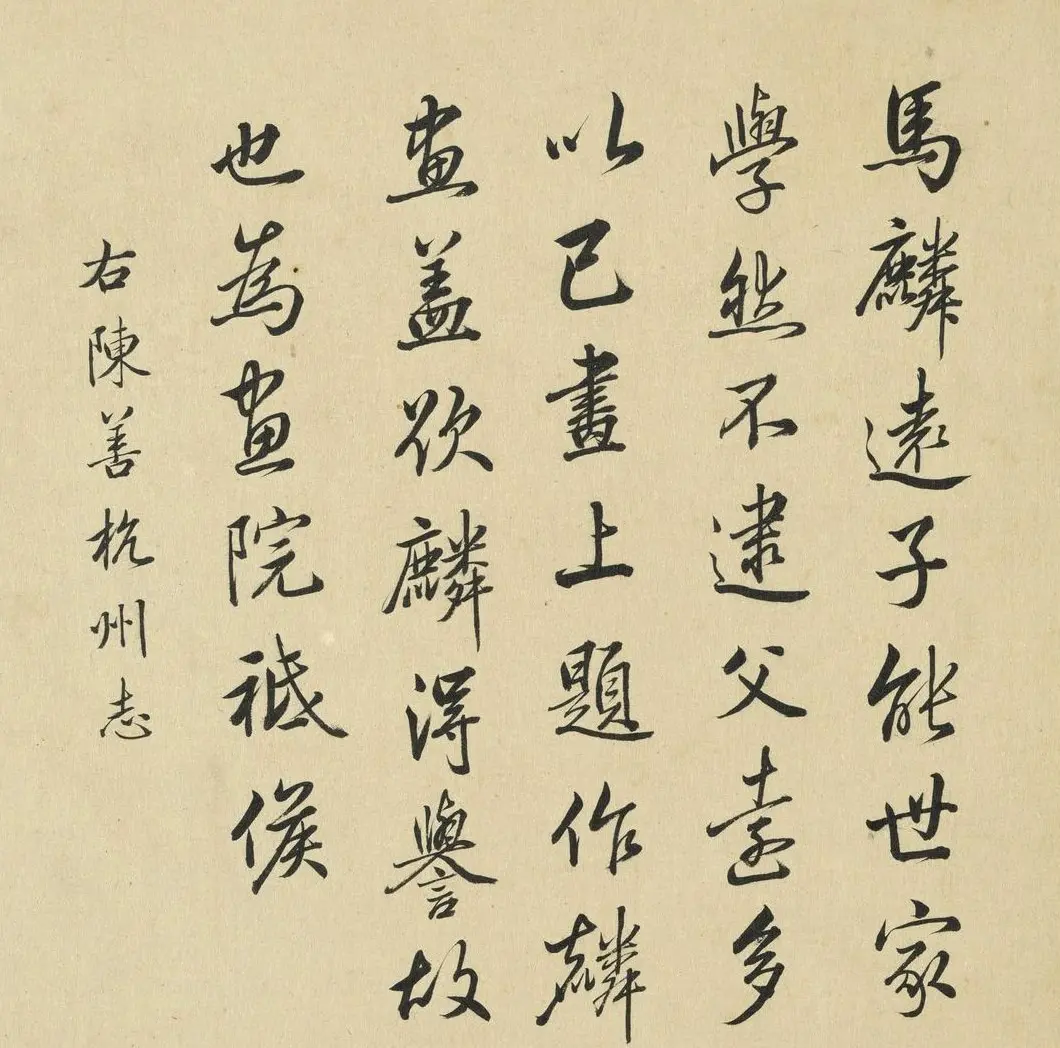 馬麟遠子能世家
學然不逮父遠多
以己畫上題作麟
畫蓋欲麟得譽故
也為畫院祗候
右陳善杭州志